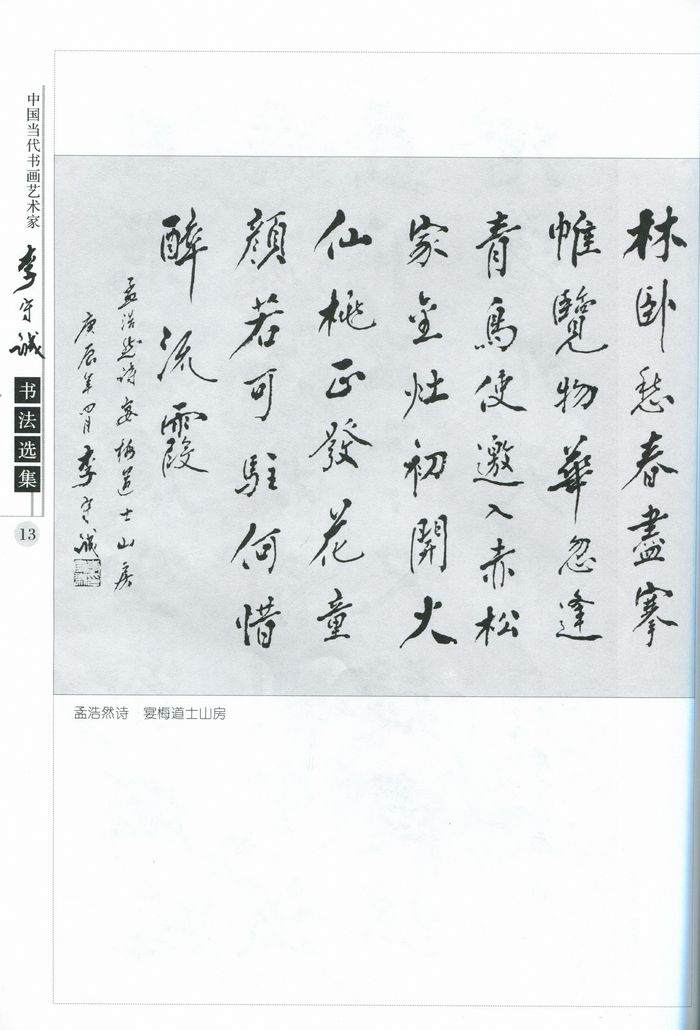 林卧愁春盡搴
帷覽物華忽逢
青鳥使邀入赤松
家金灶初開火
仙桃正發花童
顏若可駐何惜
醉流霞
孟浩然诗宴梅道士山房
庚辰年四月李守诚
孟浩然诗 宴梅道士山房
中国当代书画艺术家
李守诚
书法选集
13